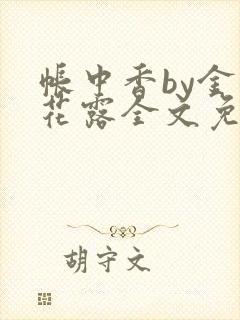 帐中香by金
花露全文免
胡守文